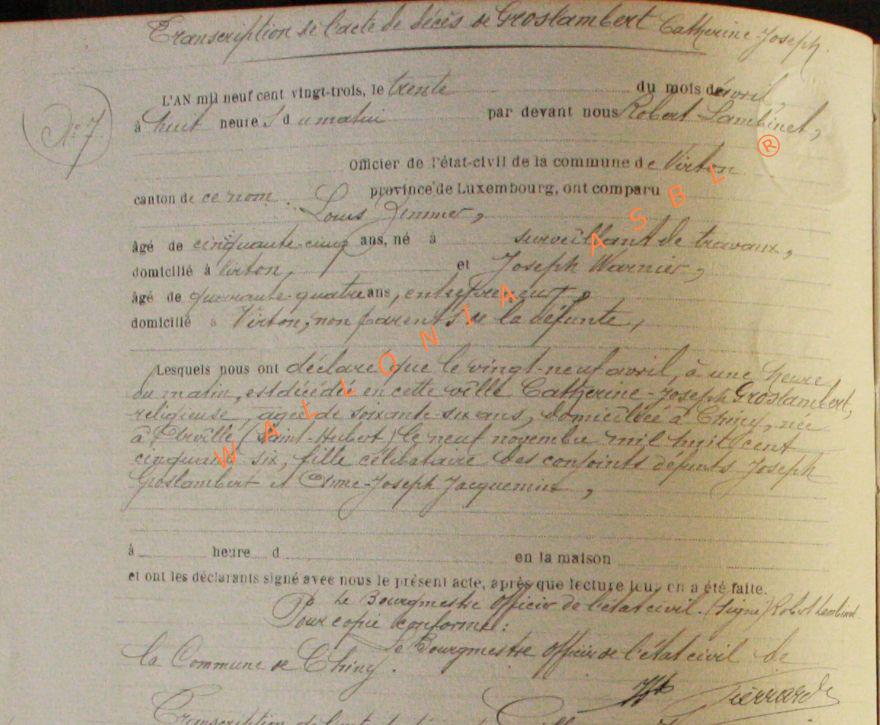 Transcription de l'acte de décès de Groslambert Catherine-Joseph.
N° 7
L'AN mil neuf cent vingt-trois, le trente du mois de avril
à huit heures du matin par devant nous Robert Lambinet,
Officier de l'état-civil de la commune de Virton
canton de ce nom. province de Luxembourg, ont comparu
Louis Zimmer,
âgé de cinquante cinq ans, né à surveillant de travaux,
domicilié à Virton, et Joseph Warnier,
âgé de quarante quatre ans, entrepreneur,
domicilié à Virton, non parents de la défunte,
Lesquels nous ont déclaré que le vingt-neuf avril, à une heure
du matin, est décédée en cette ville Catherine-Joseph Groslambert,
religieuse, âgée de soixante-six ans, domiciliée à Chiny, née
à (Saint-Hubert) le neuf novembre mil huit cent
cinquante six, fille célibataire des conjoints défunts Joseph
Groslambert et Joseph Jacquemin,
à heure d en la maison
et ont les déclarants signé avec nous le présent acte, après que lecture leur en a été faite.
Le Bourgmestre officier de l'état civil. (signé) Robert Lambinet
Pour copie conforme:
Le Bourgmestre officier de l'état civil de
la Commune de Chiny.
Pierrard
Transcription de l'acte de
WALLONIA ASBL ®